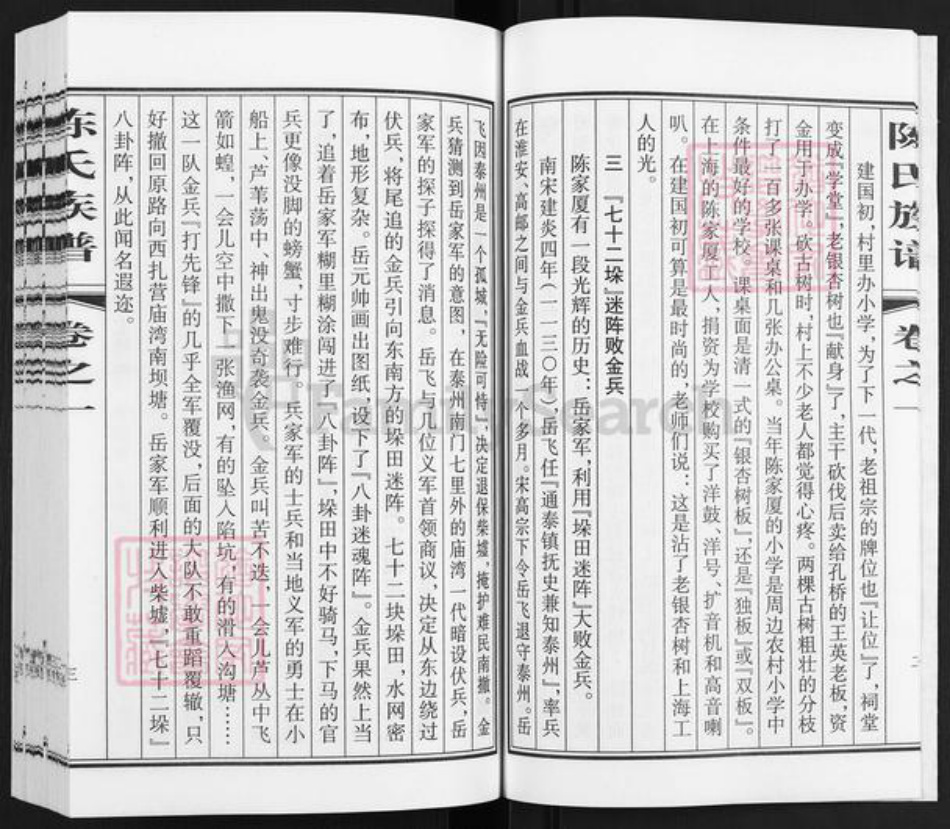 陈氏族谱
卷之一
建国初,村里办小学,为了下一代,老祖宗的牌位也『让位』了,祠堂
变成『学堂』,老银杏树也『献身』了,主干砍伐后卖给孔桥的王英老板,资
金用于办学。砍古树时,村上不少老人都觉得心疼。两棵古树粗壮的分枝
打了一百多张课桌和几张办公桌。当年陈家厦的小学是周边农村小学中
条件最好的学校。课桌面是清一式的『银杏树板』,还是『独板』或『双板』。
在上海的陈家厦工人,捐资为学校购买了洋鼓、洋号、扩音机和高音喇
叭。在建国初可算是最时尚的,老师们说:这是沾了老银杏树和上海工
人的光。
三 『七十二垛』迷阵败金兵
陈家厦有一段光辉的历史:岳家军,利用『垛田迷阵』大败金兵。
南宋建炎四年(一一三〇年),岳飞任『通泰镇抚史兼知泰州』,率兵
在淮安、高邮之间与金兵血战一个多月。宋高宗下令岳飞退守泰州。岳
飞因泰州是一个孤城,『无险可恃』,决定退保柴墟,掩护难民南撤。金
兵猜测到岳家军的意图,在泰州南门七里外的庙湾一代暗设伏兵,岳
家军的探子探得了消息。岳飞与几位义军首领商议,决定从东边绕过
伏兵,将尾追的金兵引向东南方的垛田迷阵。七十二块垛田,水网密
布,地形复杂。岳元帅画出图纸,设下了『八卦迷魂阵』。金兵果然上当
了,追着岳家军糊里糊涂闯进了『八卦阵』,垛田中不好骑马,下马的官
兵更像没脚的螃蟹,寸步难行。兵家军的士兵和当地义军的勇士在小
船上、芦苇荡中、神出鬼没奇袭金兵。金兵叫苦不迭,一会儿芦丛中飞
箭如蝗,一会儿空中撒下一张渔网,有的坠入陷坑,有的滑入沟塘……
这一队金兵『打先锋』的几乎全军覆没,后面的大队不敢重蹈覆辙,只
好撤回原路向西扎营庙湾南坝塘。岳家军顺利进入柴墟,『七十二垛』
八卦阵,从此闻名遐迩。
陈氏族谱
卷之一
三
FamilySearch